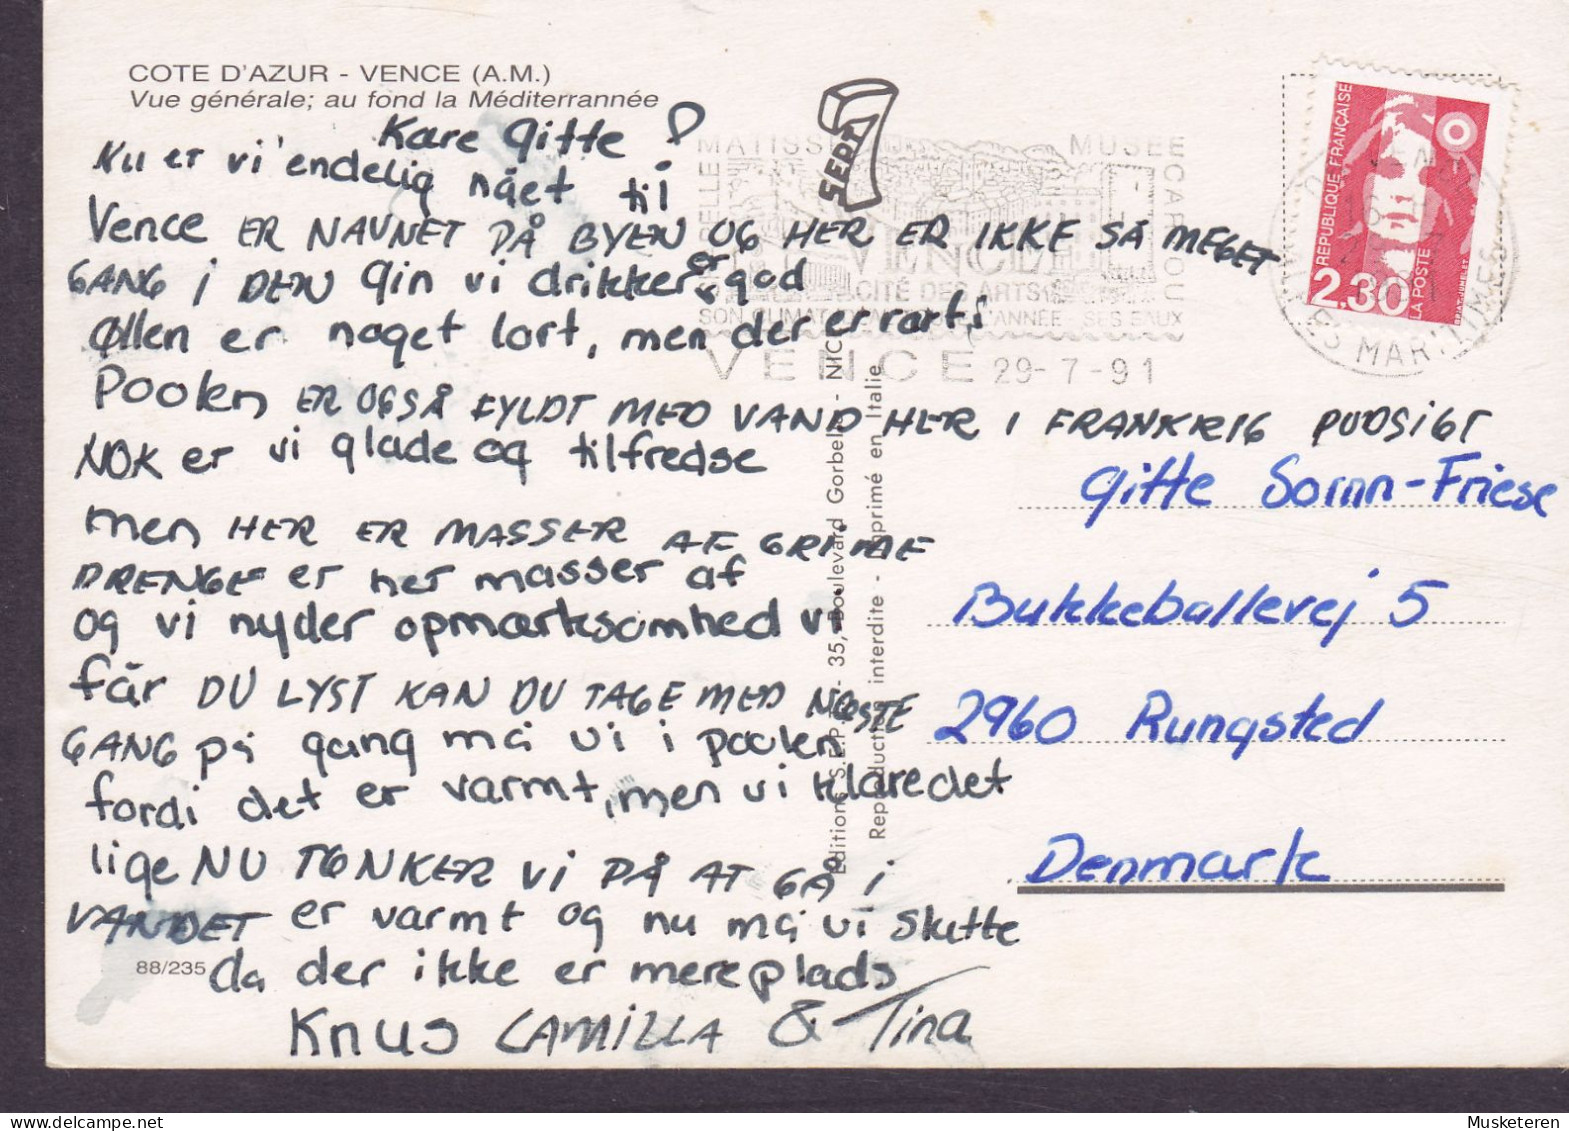 COTE D'AZUR - VENCE (A.M.)
Vue générale; au fond la Méditerrannée
Kære Gitte!
Nu er vi endelig nået til
Vence ER NAVNET PÅ BYEN OG HER ER IKKE SÅ MEGET
GANG i DEN Gin vi drikker er god
Øllen er noget lort, men der er rart i
Poolen ER OGSÅ FYLDT MED VAND HER I FRANKRIG PUDSIGT
NOK er vi glade og tilfredse
men HER ER MASSER AF GRIMME
DRENGE er her masser af
og vi nyder opmærksomhed vi
får DU LYST KAN DU TAGE MED NÆSTE
GANG på gang må vi i poolen
fordi det er varmt, men vi klare det
lige NU TÆNKER vi PÅ AT GÅ i
VANDET er varmt og nu må vi slutte
da der ikke er mere plads
Knus CAMILLA & Tina
88/235
Editions S.E.P.T. - 35, Boulevard Gorbella - NICE
Reproduction interdite - Imprimé en Italie
SEPT
MATISSE
MUSEE CARZOU
VENCE
CITÉ DES ARTS
SON CLIMAT L'ANNÉE SES EAUX
VENCE 29-7-91
REPUBLIQUE FRANÇAISE
2,30
LA POSTE
BRIAT-JUMELET
VENCE
ALPES MARITIMES
Gitte Sornn-Friese
Bukkeballevej 5
2960 Rungsted
Denmark
Musketeren